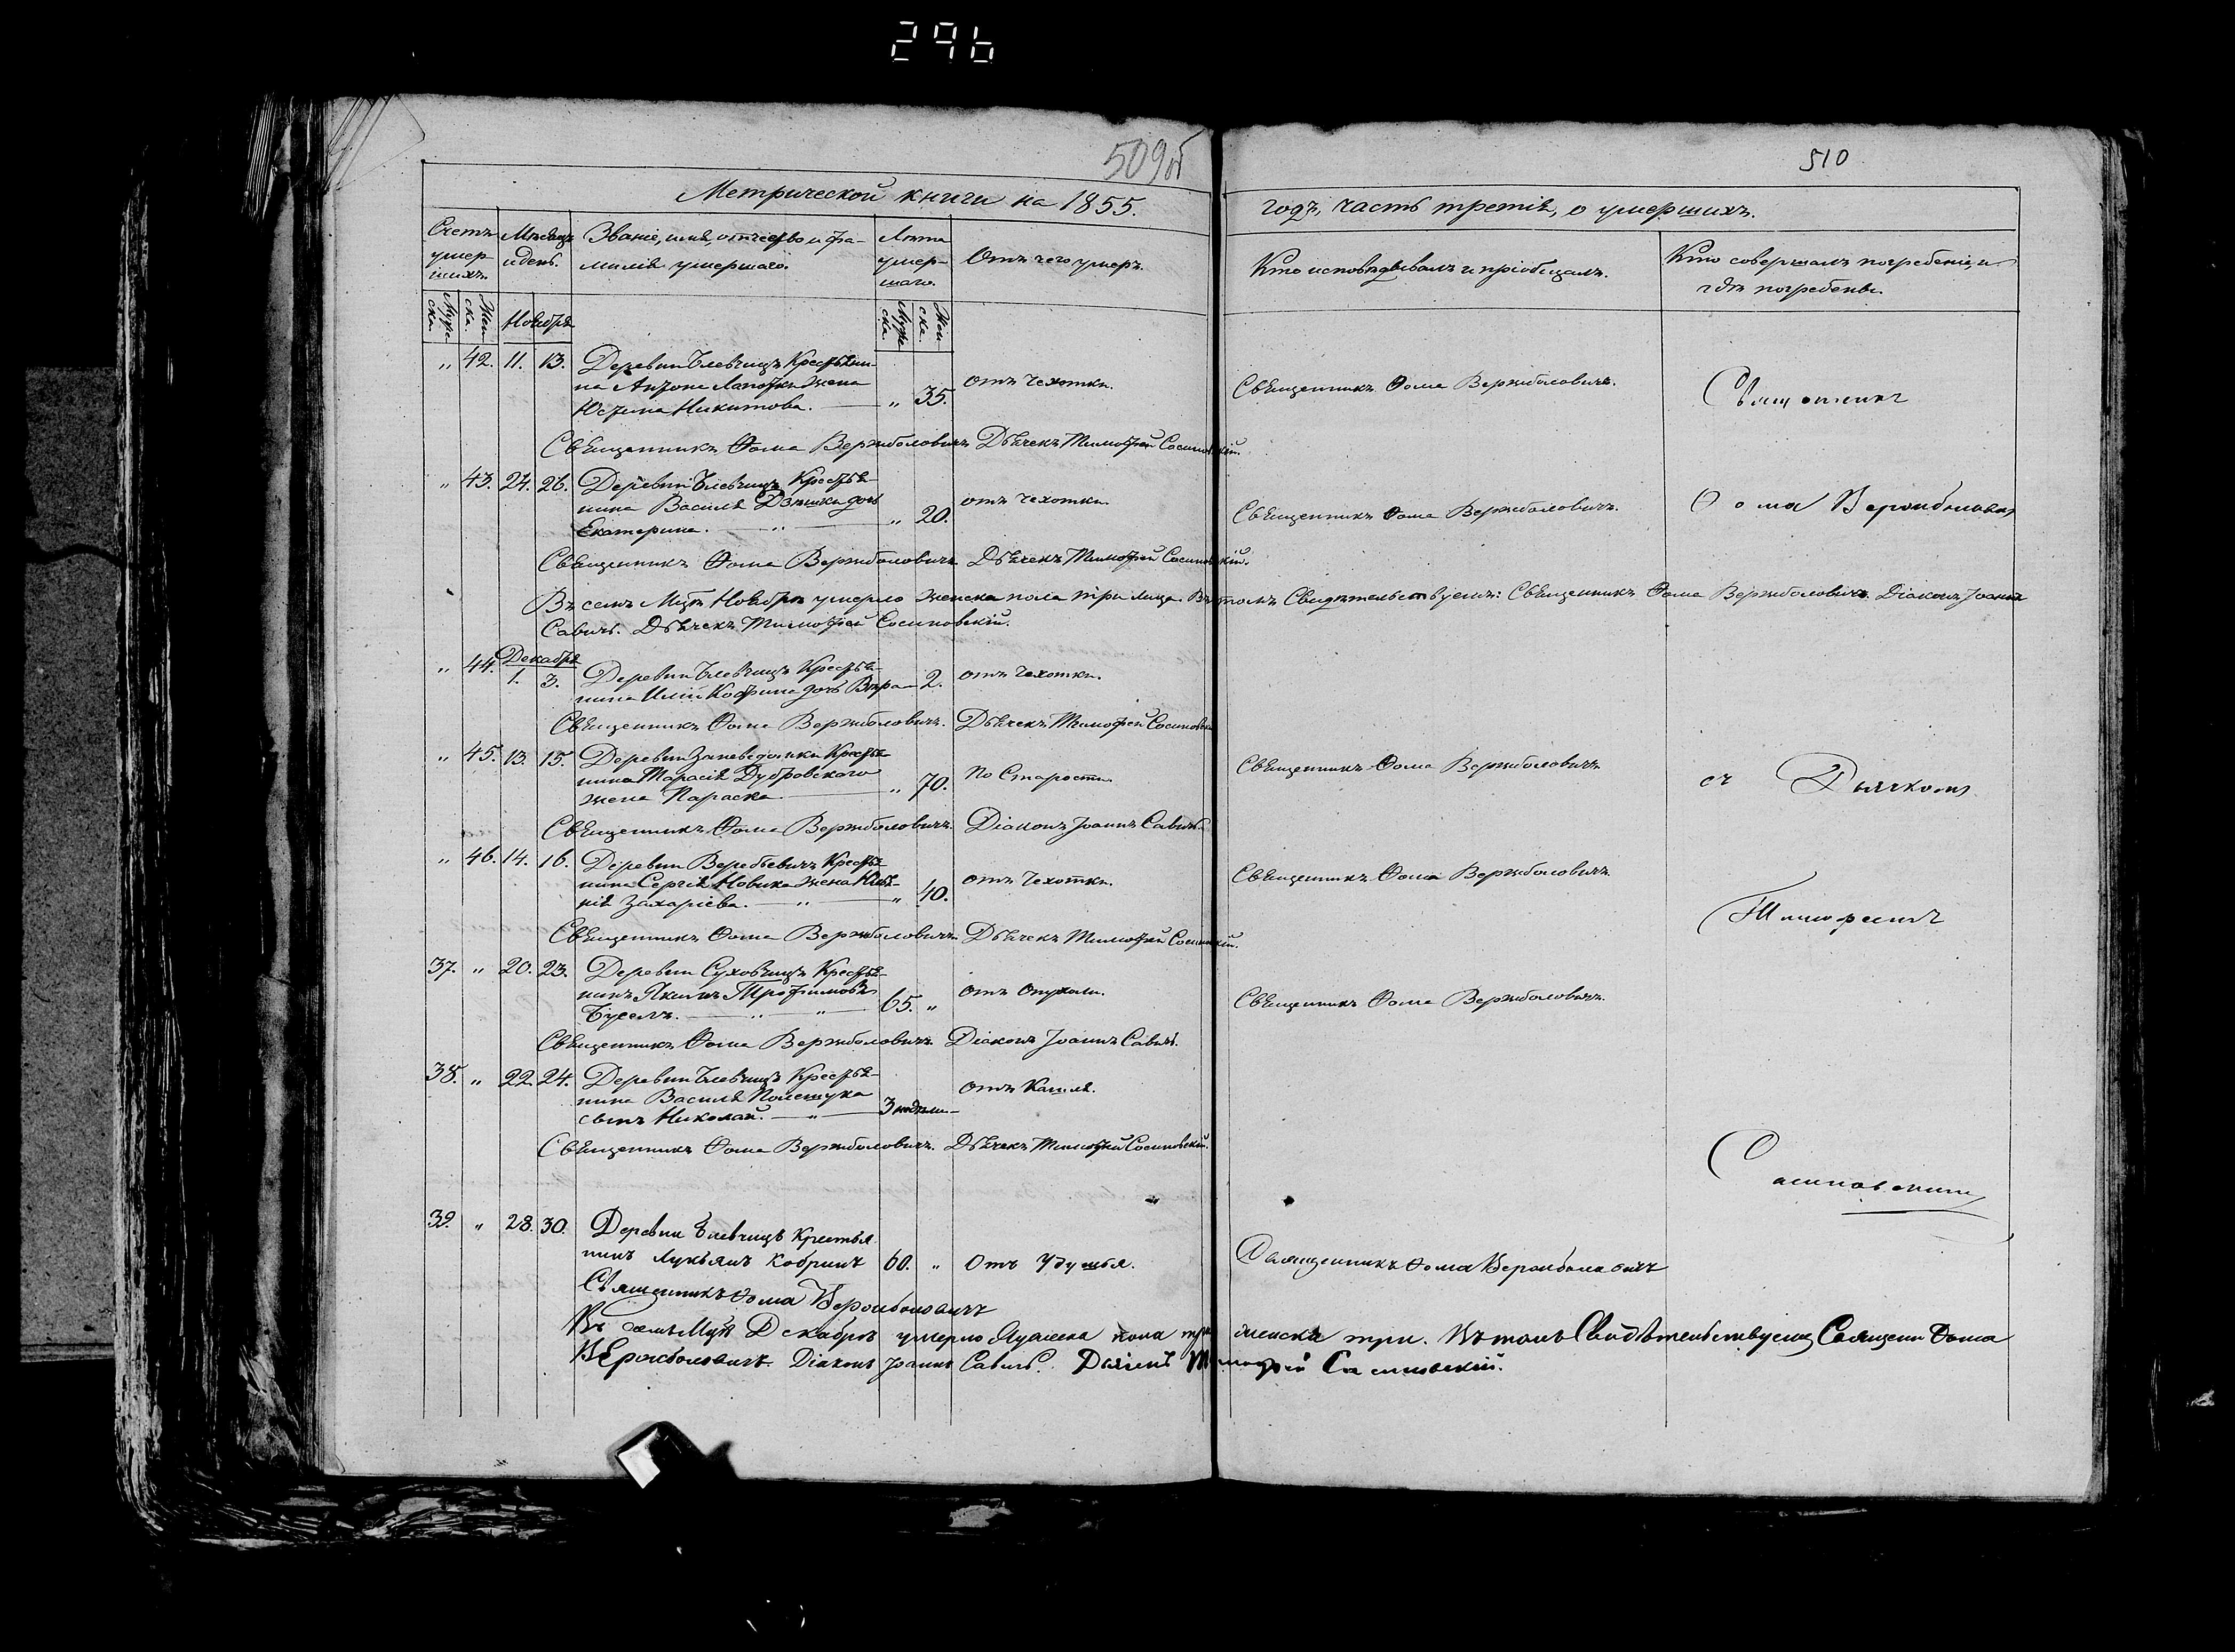 296
509об
510
Метрической книги на 1855.
годъ, часть третія, о умершихъ.
Счетъ умер-шихъ.
Мѣсяцъ и день.
Званіе, имя, отчество и фа-
милія умершаго.
Лѣта умер-шаго.
Отъ чего умеръ.
Кто исповѣдывалъ и пріобщалъ.
Кто совершалъ погребеніе, и
гдѣ погребены.
Муже ска.
Жен ска.
Ноября
Муже ска.
Жен ска.
„ 42. 11. 13. Деревни Крестьяни-
на Антона Лапотки жена
Юстина Никитова. „ 35.
отъ чехотки.
Священникъ Ѳома Вержболовичъ.
Священникъ
Священникъ Ѳома Вержболовичъ Дьячекъ Тимофей Сосиновскій.
„ 43. 24. 26. Деревни Крестья-
нина Василія дочь
Екатерина. „ „ 20.
отъ чехотки.
Священникъ Ѳома Вержболовичъ.
Ѳома Вержболовичъ
Священникъ Ѳома Вержболовичъ Дьячекъ Тимофей Сосиновскій.
Въ семъ Мцѣ Ноябрѣ умерло женска пола три лица. Въ томъ Свидѣтельствуемъ: Священникъ Ѳома Вержболовичъ. Діаконъ Іоаннъ
Савичъ. Дьячекъ Тимофей Сосиновскій.
Декабря
„ 44. 1. 3. Деревни Крестья-
нина Иліи Кобрина дочь Вѣра 2.
отъ чехотки.
Священникъ Ѳома Вержболовичъ. Дьячекъ Тимофей Сосиновскій
„ 45. 13. 15. Деревни Крестья-
нина Тарасія Дубровского
жена Параска „ 70.
По Старости
Священникъ Ѳома Вержболовичъ
съ Дьячкомъ
Священникъ Ѳома Вержболовичъ. Діаконъ Іоаннъ Савичъ.
„ 46. 14. 16. Деревни Веребьевичъ Крестья-
нина Сергія Новика жена Юліа-
нія Захаріева. „ „ 40.
отъ чехотки.
Священникъ Ѳома Вержболовичъ.
Тимофеемъ
Священникъ Ѳома Вержболовичъ Дьячекъ Тимофей Сосиновскій.
37. „ 20. 23. Деревни Суховчицъ Крестья-
нинъ Якимъ Трофимовъ
Буселъ. „ „ 65. „
отъ опухоли.
Священникъ Ѳома Вержболовичъ.
Священникъ Ѳома Вержболовичъ. Діаконъ Іоаннъ Савичъ.
38. „ 22. 24. Деревни Крестья-
нина Василія Полещука
сынъ Николай. „ 3 недѣли
отъ Кашля.
Священникъ Ѳома Вержболовичъ. Дьячекъ Тимофей Сосиновскій.
Сосиновскимъ
39. „ 28. 30. Деревни Крестья
нинъ Лукьянъ Кобринъ 60. „ Отъ Удушья.
Священникъ Ѳома Вержболовичъ
Священникъ Ѳома Вержболовичъ
Въ семъ Мцѣ Декабрѣ умерло Мужеска пола три женска три. Въ томъ Свидѣтельствуемъ Священ Ѳома
Вержболовичъ. Діаконъ Іоаннъ Савичъ. Дьячекъ Тимофей Сосиновскій.